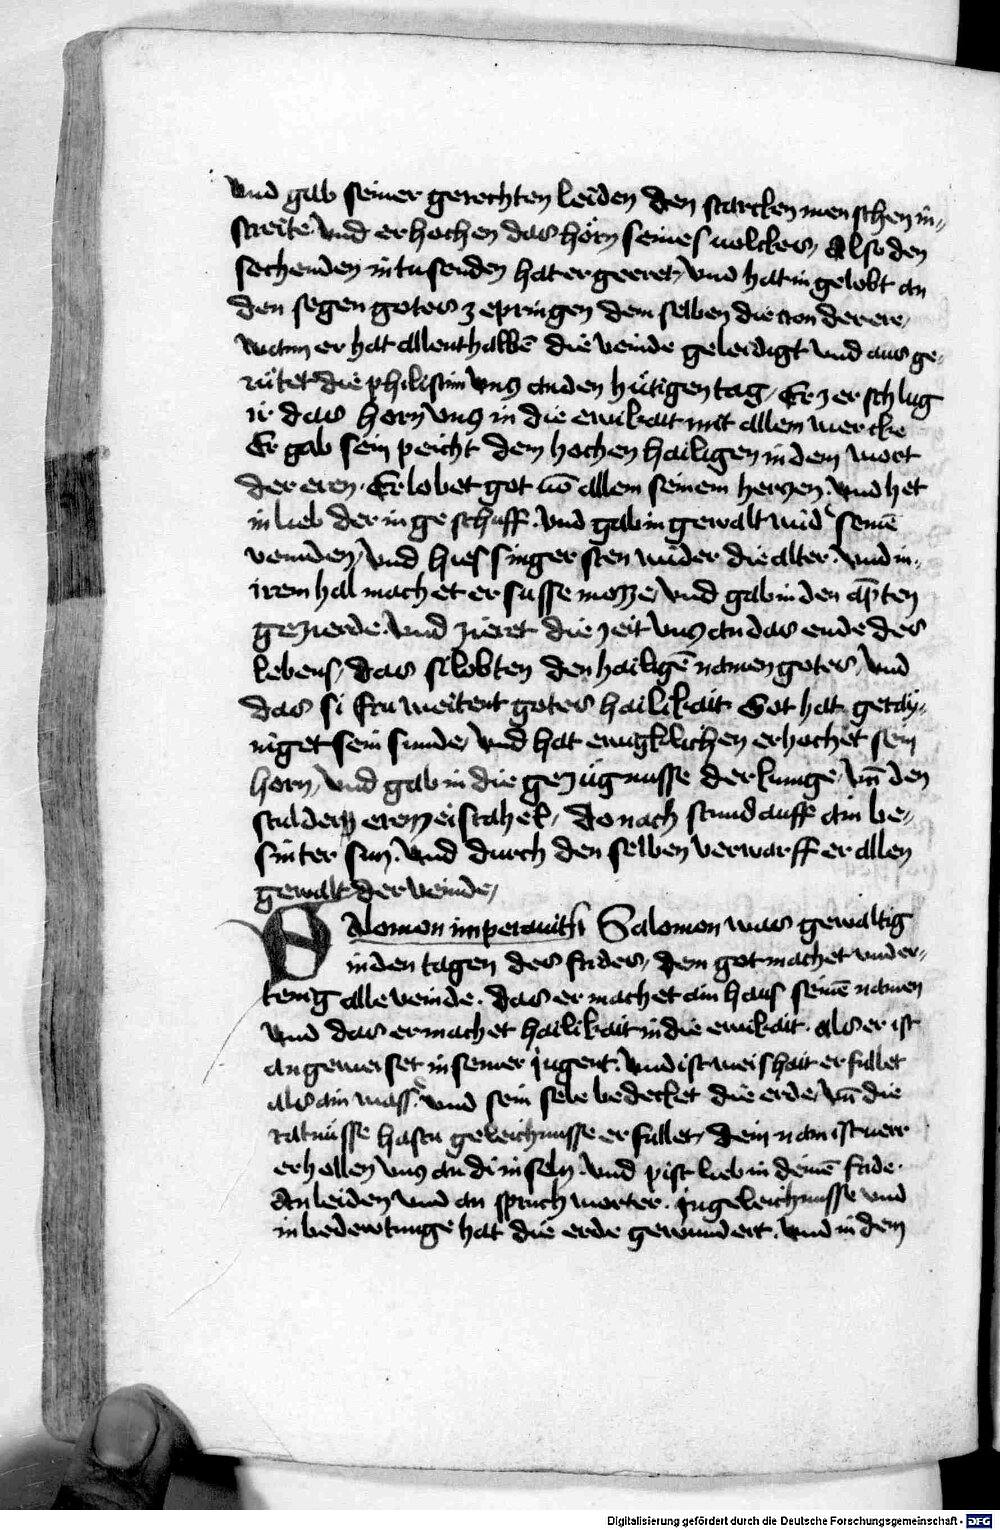 und gab seiner gerechten leiden den starcken menschen in
streite. Und erhochen das horn seines volckes, Also den
sechenden in tusenden hat er geeret, Und hat in gelobt an
den segen gotes zepringen dem selben die cron der ere,
wann er hat allenthalbē die veinde geleidigt und aus ge,
rütet die philistim vns an den hütigen tag, Er zerschlug
ir das horn vns in die ewikait mit allem wercke
Er gab sein peicht dem hochen hailigen in dem wort
der eren. Er lobet got vō allem seinem herczen. Und het
in lieb der in geschuff. Und gab in gewalt wid' seinē
veinden, Und hies singer sten wider die alter. Und in,
irem hal machet er susse moze, Und gab in den
gezierde. Und zieret die zeit vns an das ende des
lebens, das si lobten den hailigē namen gotes, Und
das si fru weitent gotes hailikait Got hat geray,
niget sein sunde, Und hat ewigklichen erhochet sein
horn, Und gab in die gezügnusse der kunige, Vn̄ den
stul der eren in israhel, do nach stund auff ain be,
sinter sun. Und durch den selben verwarff er allen
gewalt der veinde,
Salomon imperauit Salomon was gewaltig
in den tagen des frides, dem got machet vnder,
tenig alle veinde. das er machet ain haus seinē namen
Und das er machet hailikait in die ewikait. als er ist
angeweiset in seiner jugent. Und ist weishait erfullet
als ain wass' und sein sele bedecket die erde, Vn̄ die
ratnüsse hastu geleichnusse erfullet, dein nam ist verr
erhollen vns an di inseln. Und pist lieb in deinē fride.
An leiden und an spruchworter. In geleichnusse und
in bedewtunge hat die erde gewundert. Und in dem
Digitalisierung gefördert durch die Deutsche Forschungsgemeinschaft - DFG